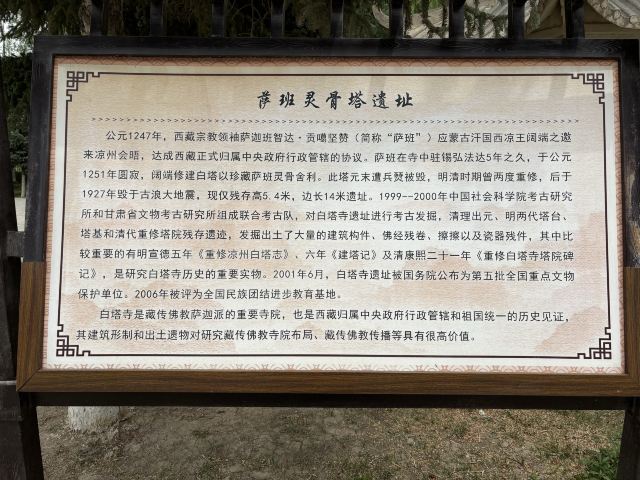 萨班灵骨塔遗址
公元1247年，西藏宗教领袖萨迦班智达·贡嘎坚赞（简称“萨班”）应蒙古汗国西凉王阔端之邀
来凉州会晤，达成西藏正式归属中央政府行政管辖的协议。萨班在寺中驻锡弘法达5年之久，于公元
1251年圆寂，阔端修建白塔以珍藏萨班灵骨舍利。此塔元末遭兵燹被毁，明清时期曾两度重修，后于
1927年毁于古浪大地震，现仅残存高5.4米，边长14米遗址。1999--2000年中国社会科学院考古研究
所和甘肃省文物考古研究所组成联合考古队，对白塔寺遗址进行考古发掘，清理出元、明两代塔台、
塔基和清代重修塔院残存遗迹，发掘出土了大量的建筑构件、佛经残卷、擦擦以及瓷器残件，其中比
较重要的有明宣德五年《重修凉州白塔志》、六年《建塔记》及清康熙二十一年《重修白塔寺塔院碑
记》，是研究白塔寺历史的重要实物。2001年6月，白塔寺遗址被国务院公布为第五批全国重点文物
保护单位。2006年被评为全国民族团结进步教育基地。
白塔寺是藏传佛教萨迦派的重要寺院，也是西藏归属中央政府行政管辖和祖国统一的历史见证，
其建筑形制和出土遗物对研究藏传佛教寺院布局、藏传佛教传播等具有很高价值。